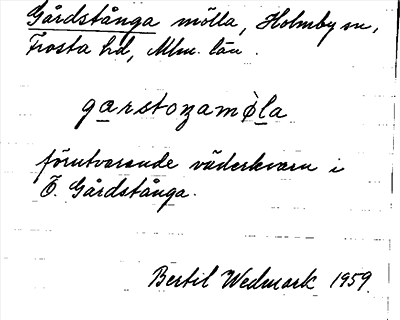 Gårdstånga mölla, Holmby sn,
Frosta hd, Mlm. län.
garstoŋamø̀la
förutvarande väderkvarn i
Ö. Gårdstånga.
Bertil Wedmark 1959.